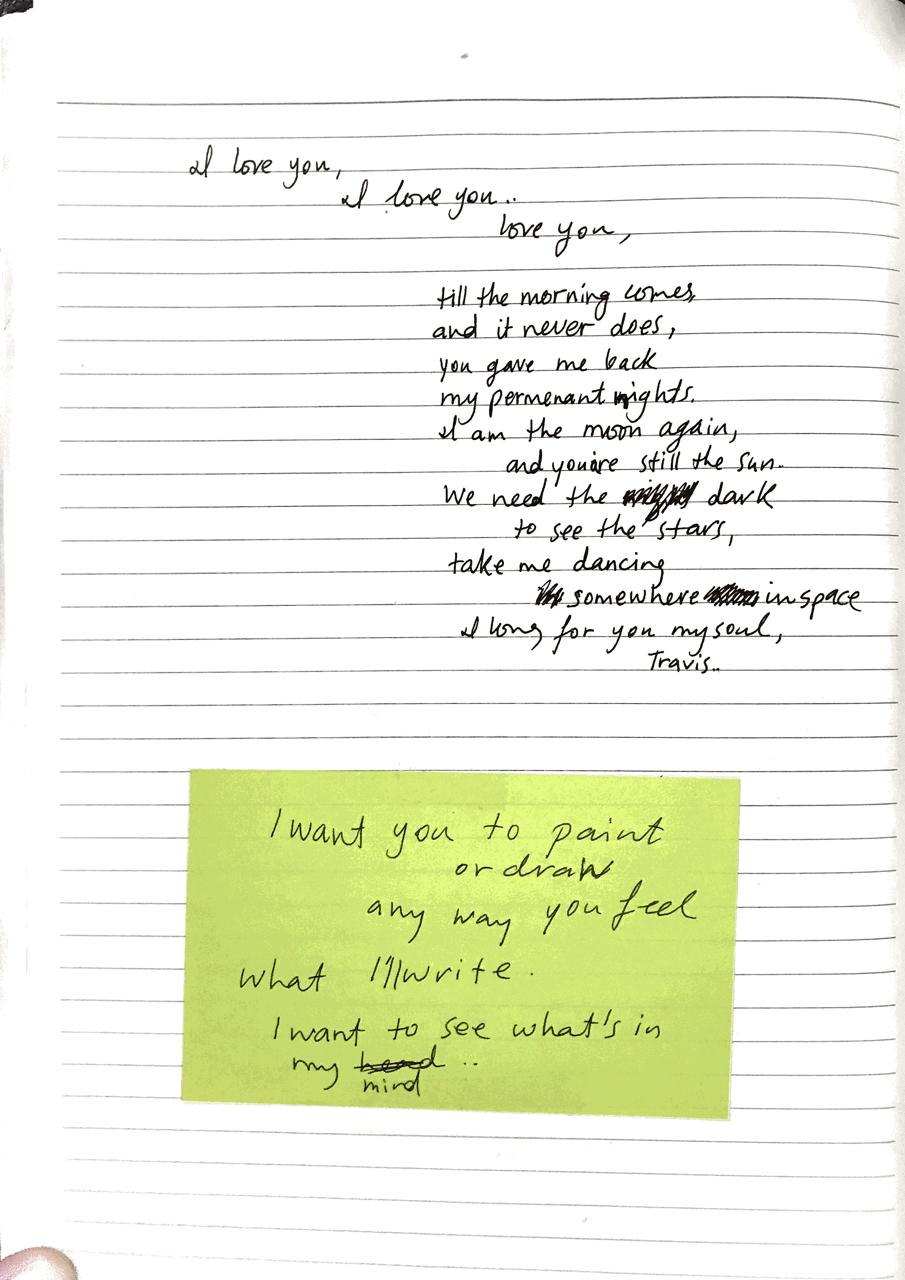 I love you,
I love you..
love you,
till the morning comes,
and it never does,
you gave me back
my permenant nights.
I am the moon again,
and you're still the sun.
We need the dark
to see the stars,
take me dancing
somewhere in space
I long for you my soul,
Travis..
I want you to paint
or draw
any way you feel
what I'll write.
I want to see what's in
my head ..
mind